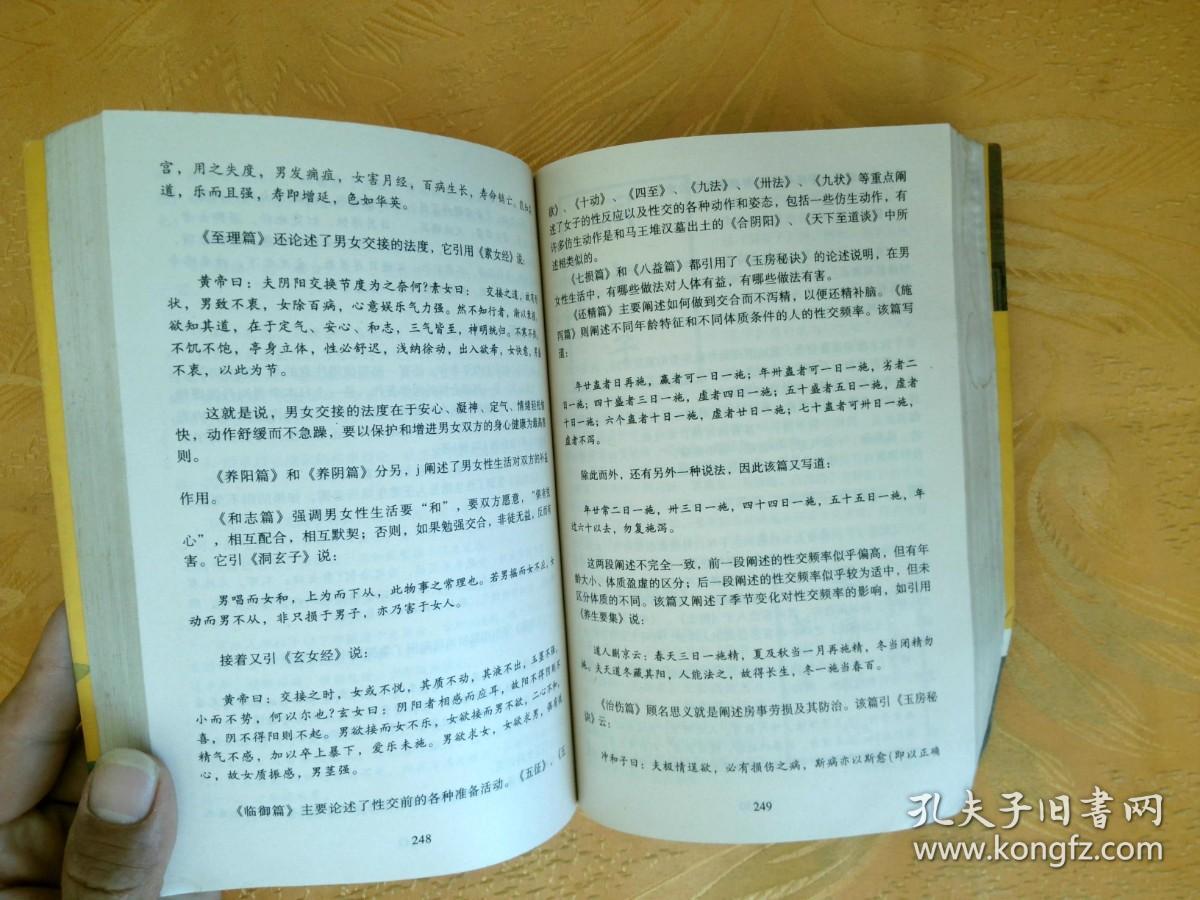 宫，用之失度，男发痈疽，女害月经，百病生长，寿命销亡。
道，乐而且强，寿即增延，色如华英。
《至理篇》还论述了男女交接的法度，它引用《素女经》说：
黄帝曰：夫阴阳交换节度为之奈何？素女曰： 交接之道，故有形
状，男致不衰，女除百病，心意娱乐气力强。然不知行者，渐以衰损，
欲知其道，在于定气、安心、和志，三气皆至，神明统归。不寒不热，
不饥不饱，亭身立体，性必舒迟，浅纳徐动，出入欲希，女快意，男盛
不衷，以此为节。
这就是说，男女交接的法度在于安心、凝神、定气、情绪轻松愉
快，动作舒缓而不急躁，要以保护和增进男女双方的身心健康为最高原
则。
《养阳篇》和《养阴篇》分另，j 阐述了男女性生活对双方的补益
作用。
《和志篇》强调男女性生活要“和”，要双方愿意，“俱有悦
心”，相互配合，相互默契；否则，如果勉强交合，非徒无益，反而有
害。它引《洞玄子》说：
男唱而女和，上为而下从，此物事之常理也。若男摇而女不应，女
动而男不从，非只损于男子，亦乃害于女人。
接着又引《玄女经》说：
黄帝曰：交接之时，女或不悦，其质不动，其液不出，玉茎不强，
小而不势，何以尔也？玄女曰：阴阳者相感而应耳，故阳不得阴则不
喜，阴不得阳则不起。男欲接而女不乐，女欲接而男不欲，二心不和，
精气不感，加以卒上暴下，爱乐未施。男欲求女，女欲求男，俱有悦
心，故女质振感，男茎强。
《临御篇》主要论述了性交前的各种准备活动。《五征》、《五
248
欲》、《十动》、《四至》、《九法》、《卅法》、《九状》等重点阐
述了女子的性反应以及性交的各种动作和姿态，包括一些仿生动作，有
许多仿生动作是和马王堆汉墓出土的《合阴阳》、《天下至道谈》中所
述相类似的。
《七损篇》和《八益篇》都引用了《玉房秘诀》的论述说明，在男
女性生活中，有哪些做法对人体有益，有哪些做法有害。
《还精篇》主要阐述如何做到交合而不泻精，以便还精补脑。《施
泻篇》则阐述不同年龄特征和不同体质条件的人的性交频率。该篇写
道：
年廿盎者日再施，羸者可一日一施；年卅盎者可一日一施，劣者二
日一施；四十盛者三日一施，虚者四日一施；五十盛者五日一施，虚者
十日一施；六个盎者十日一施，虚者廿日一施；七十盎者可卅日一施，
虚者不泻。
除此而外，还有另外一种说法，因此该篇又写道：
年廿常二日一施，卅三日一施，四十四日一施，五十五日一施，年
过六十以去，勿复施泻。
这两段阐述不完全一致，前一段阐述的性交频率似乎偏高，但有年
龄大小、体质盈虚的区分；后一段阐述的性交频率似乎较为适中，但未
区分体质的不同。该篇又阐述了季节变化对性交频率的影响，如引用
《养生要集》说：
道人蒯京云：春天三日一施精，夏及秋当一月再施精，冬当闭精勿
施。夫天道冬藏其阳，人能法之，故得长生，冬一施当春百。
《治伤篇》顾名思义就是阐述房事劳损及其防治。该篇引《玉房秘
诀》云：
冲和子曰：夫极情逞欲，必有损伤之病，斯病亦以斯愈(即以正确
249
孔夫子旧书网
www.kongfz.com